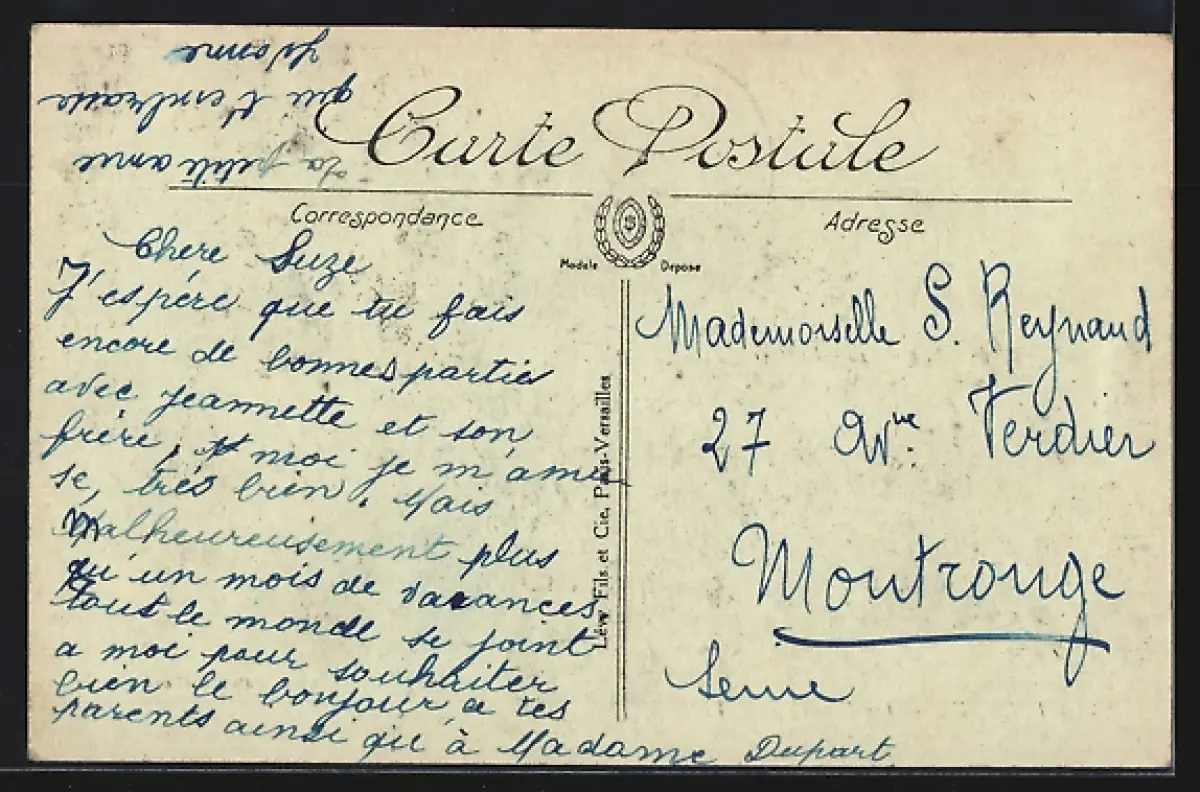 Carte Postale
Correspondance
Adresse
Modèle Déposé
Lévy Fils et Cie, Paris-Versailles
Chère Suze
J'espère que tu fais
encore de bonnes parties
avec jeannette et son
frère, et moi je m'amu
se, très bien. Mais
Malheureusement plus
qu'un mois de vacances
tout le monde se joint
a moi pour souhaiter
bien le bonjour a tes
parents ainsi qu'à Madame Dupart
ta petite amie
qui t'embrasse
Yvonne
Mademoiselle S. Reynaud
27 Avue Verdier
Montrouge
Seine